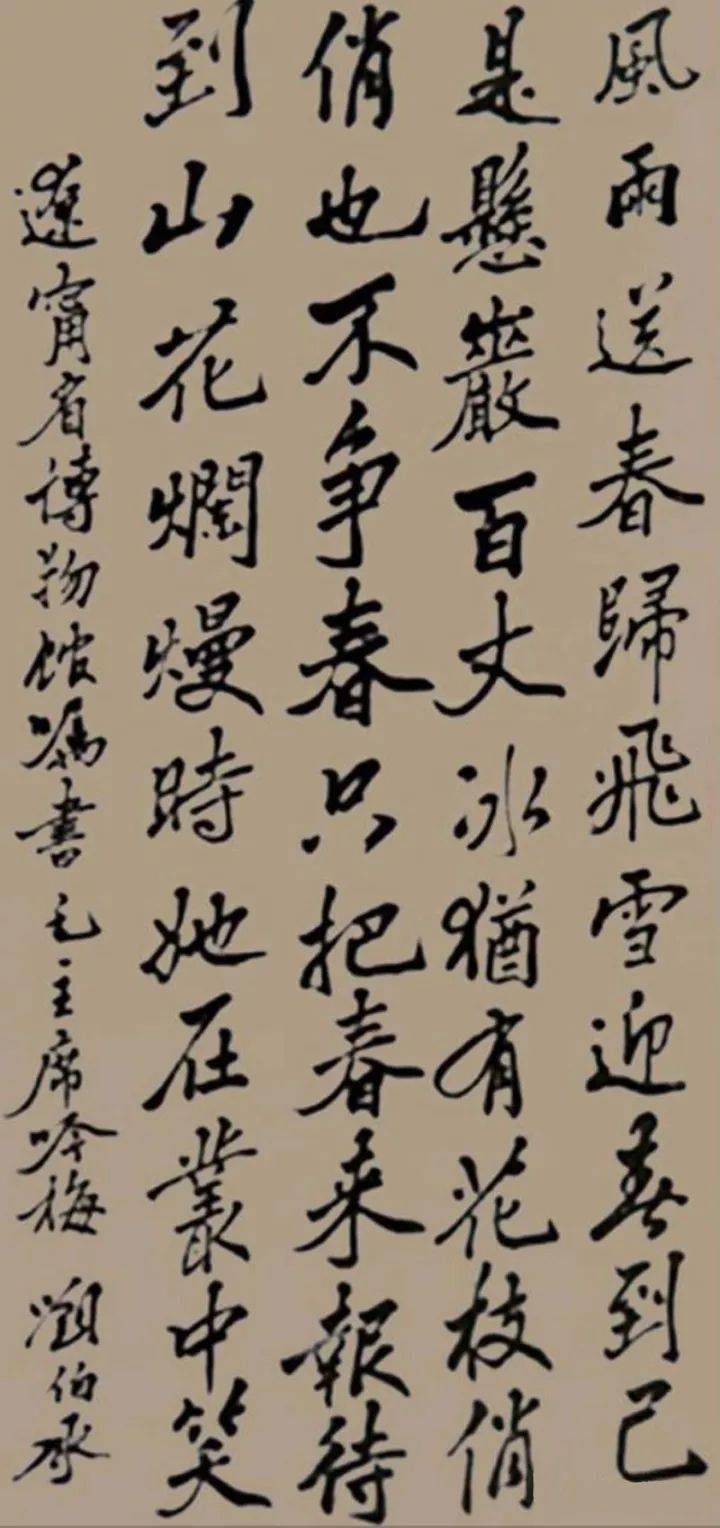 風雨送春歸飛雪迎春到已
是懸巖百丈冰猶有花枝俏
俏也不争春只把春来報待
到山花爛熳時她在叢中笑
遼寧省博物館嘱書毛主席咏梅 劉伯承